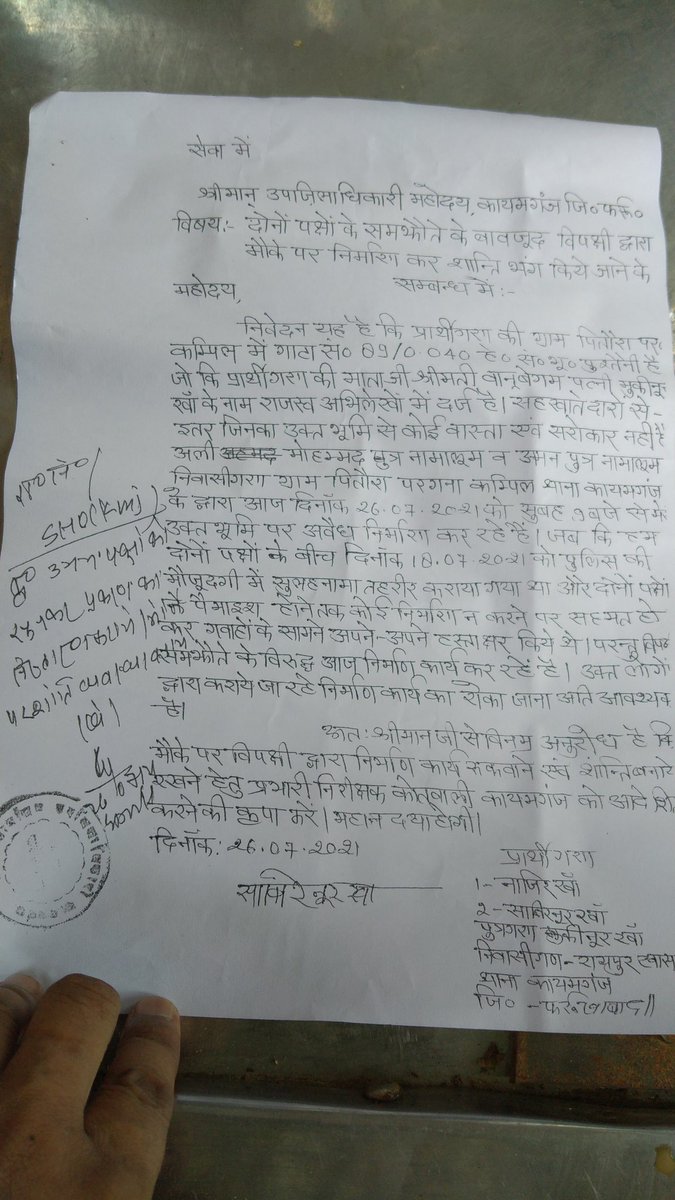 सेवा में
श्रीमान् उपजिलाधिकारी महोदय, कायमगंज जि० फर्रु०
विषय:- दोनों पक्षों के समझौते के बावजूद विपक्षी द्वारा
मौके पर निर्माण कर शान्ति भंग किये जाने के
सम्बन्ध में:-
महोदय,
निवेदन यह है कि प्रार्थीगण की ग्राम पितौरा पर०
कम्पिल में गाटा सं० 89/0.040 हे० सं० भू० पुश्तैनी है
जो कि प्रार्थीगण की माता जी श्रीमती बानूबेगम पत्नी मुकीनूर
खाँ के नाम राजस्व अभिलेखों में दर्ज है। सह खातेदारों से-
इतर जिनका उक्त भूमि से कोई वास्ता एवं सरोकार नहीं है
अली मोहम्मद पुत्र नामालूम व अमन पुत्र नामालूम
निवासीगण ग्राम पितौरा परगना कम्पिल थाना कायमगंज
के द्वारा आज दिनाँक 26.07.2021 को सुबह 9 बजे से
उक्त भूमि पर अवैध निर्माण कर रहे हैं। जब कि हम
दोनों पक्षों के बीच दिनाँक 18.07.2021 को पुलिस की
मौजूदगी में सुलहनामा तहरीर कराया गया था और दोनों पक्षों
ने पैमाइश होने तक कोई निर्माण न करने पर सहमत हो
कर गवाहों के सामने अपने-अपने हस्ताक्षर किये थे। परन्तु विपक्षी
समझौते के विरुद्ध आज निर्माण कार्य कर रहें हैं। उक्त लोगों
द्वारा कराये जा रहे निर्माण कार्य को रोका जाना अति आवश्यक
है।
अत: श्रीमान जी से विनम्र अनुरोध है कि
मौके पर विपक्षी द्वारा निर्माण कार्य रुकवाने एवं शान्ति बनाये
रखने हेतु प्रभारी निरीक्षक कोतवाली कायमगंज को आदेशित
करने की कृपा करें। महान दया होगी।
दिनाँक: 26.07.2021
प्रार्थीगण
1- नाजिर खाँ
2- साबिरनूर खाँ
पुत्रगण मुकीनूर खाँ
निवासीगण- रायपुर खास
थाना कायमगंज
जि० - फर्रुखाबाद॥
साबिरे नूर खा
SHO(KMJ)